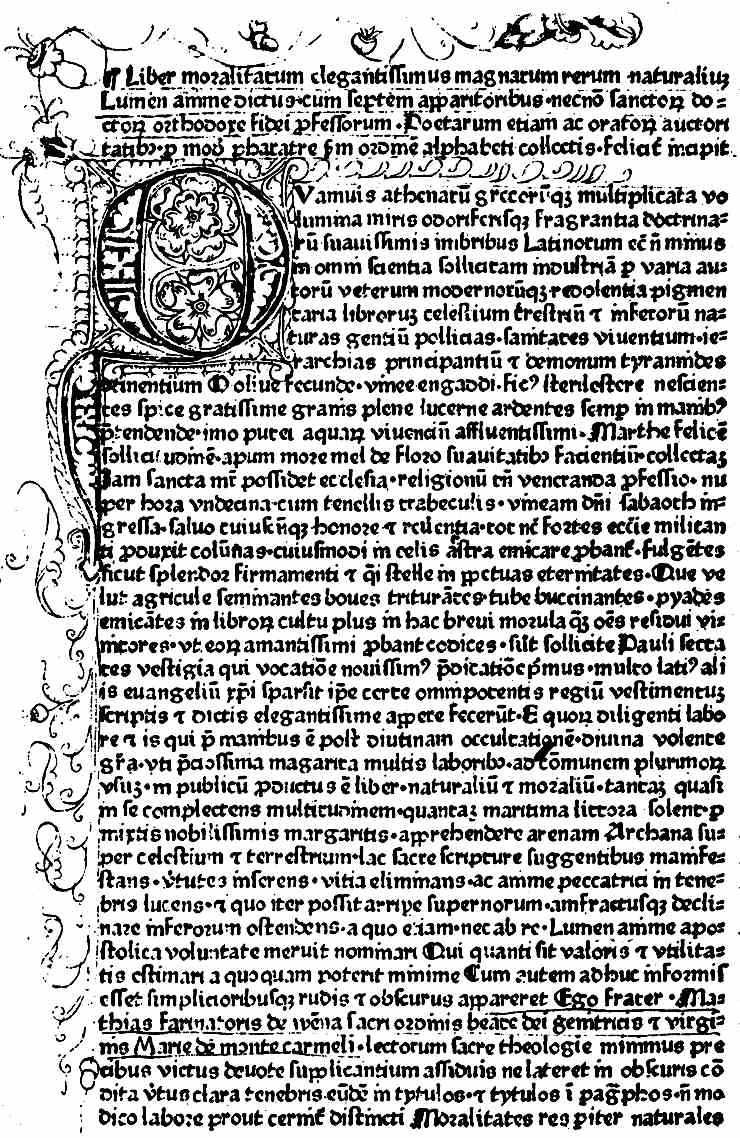 ¶ Liber moralitatum elegantissimus magnarum rerum naturaliuꝫ
Lumen aīme dictus·cum septem apparitoribus·necnō sanctoꝝ do=
ctoꝝ orthodoxe fidei ꝓfessorum·Poetarum etiam ac oratoꝝ auctori
tatibꝰ·ꝑ modū pharatre ẜm ordinē alphabeti collectis·Felicit̄ incipit
QVamuis athenarū grecerūqꝫ multiplicata vo
lumina miris odoriferisqꝫ fragrantia doctrina=
rū suauissimis imbribus Latinorum ec̄ n̄ minus
in omni scientia sollicitam industriā ꝑ varia au=
torū veterum modernorūqꝫ redolentia pigmen
taria libroruꝫ celestium t̄restriū ⁊ inferorū na=
turas gentiū pollicias·sanitates viuentium·ie=
rarchias principantiū ⁊ demonum tyrannides
ꝑtinentium O oliue fecunde·vinee engaddi·sicꝰ sterilescere nescien=
tes spice gratissime granis plene lucerne ardentes semꝑ in manibꝰ
p̄tendende·imo putei aquaꝝ viuenciū affluentissimi·Marthe felicē
sollicitudinē·apum more mel de floro suauitatibꝰ facientiū·collectaꝫ
Jam sancta mr̄ possidet ecclesia·religionū tn̄ veneranda ꝓfessio·nu
per hora vndecina·cum tenellis trabeculis·vineam dn̄i sabaoth in=
gressa·saluo cuiuscūqꝫ honore ⁊ reuerentia·tot nc̄ fortes ecc̄ie militan
ti ꝓduxit colūnas·cuiusmodi in celis astra emicare ꝓbant̄·Fulgētes
sicut splendor firmamenti ⁊ q̄i stelle in ꝑpetuas eternitates·Que ve
lut agricule seminantes boues triturātes·tube buccinantes·pyades
emicātes in libroꝝ cultu plus in hac breui morula qꝫ oēs residui vi=
nitores·vt eoꝝ amantissimi ꝓbant codices·sūt sollicite Pauli secta
tes vestigia qui vocatiōe nouissimꝰ p̄dicatiōe p̄mus·multo latiꝰ ali
is euangeliū xp̄i sparsit ip̄e certe omnipotentis regiū vestimentuꝫ
scriptis ⁊ dictis elegantissime aꝑere fecerūt·E quoꝝ diligenti labo
re ⁊ is qui p̄ manibus ē post diutinam occultationē·diuina volente
gr̄a·vti p̄ciosissima magarita multis laboribꝰ·ad cōmunem plurimoꝝ
vsuꝫ·in publicū ꝓductus ē liber·naturaliū ⁊ moraliū·tantaꝫ quasi
in se complectens multitudinem·quantaꝫ maritima littora solent·ꝑ
mixtis nobilissimis margaritis·apprehendere arenam Archana su=
per celestium ⁊ terrestrium·lac sacre scripture suggentibus manife=
stans·v̄tutes inserens·vitia eliminans·ac anime peccatrici in tene=
bris lucens·⁊ quo iter possit arripe supernorum·amfractusqꝫ decli=
nare inferorum ostendens·a quo etiam·nec ab re·Lumen anime apo=
stolica voluntate meruit nominari Qui quanti sit valoris ⁊ vtilita=
tis estimari a quoquam poterit minime Cum autem adhuc informis
esset simplicioribusqꝫ rudis ⁊ obscurus appareret Ego Frater·Ma=
thias Farinatoris de wēna sacri ordinis beate dei genitricis ⁊ virgi=
nis Marie de monte carmeli·lectorum sacre theologie minimus pre
cibus victus deuote supplicantium assiduis ne lateret in obscuris cō
dita v̄tus clara tenebris·eūdē in tytulos·⁊ tytulos ī pag̅phos·n̄ mo
dico labore prout cernit̄ distincti Moralitates req piter naturales